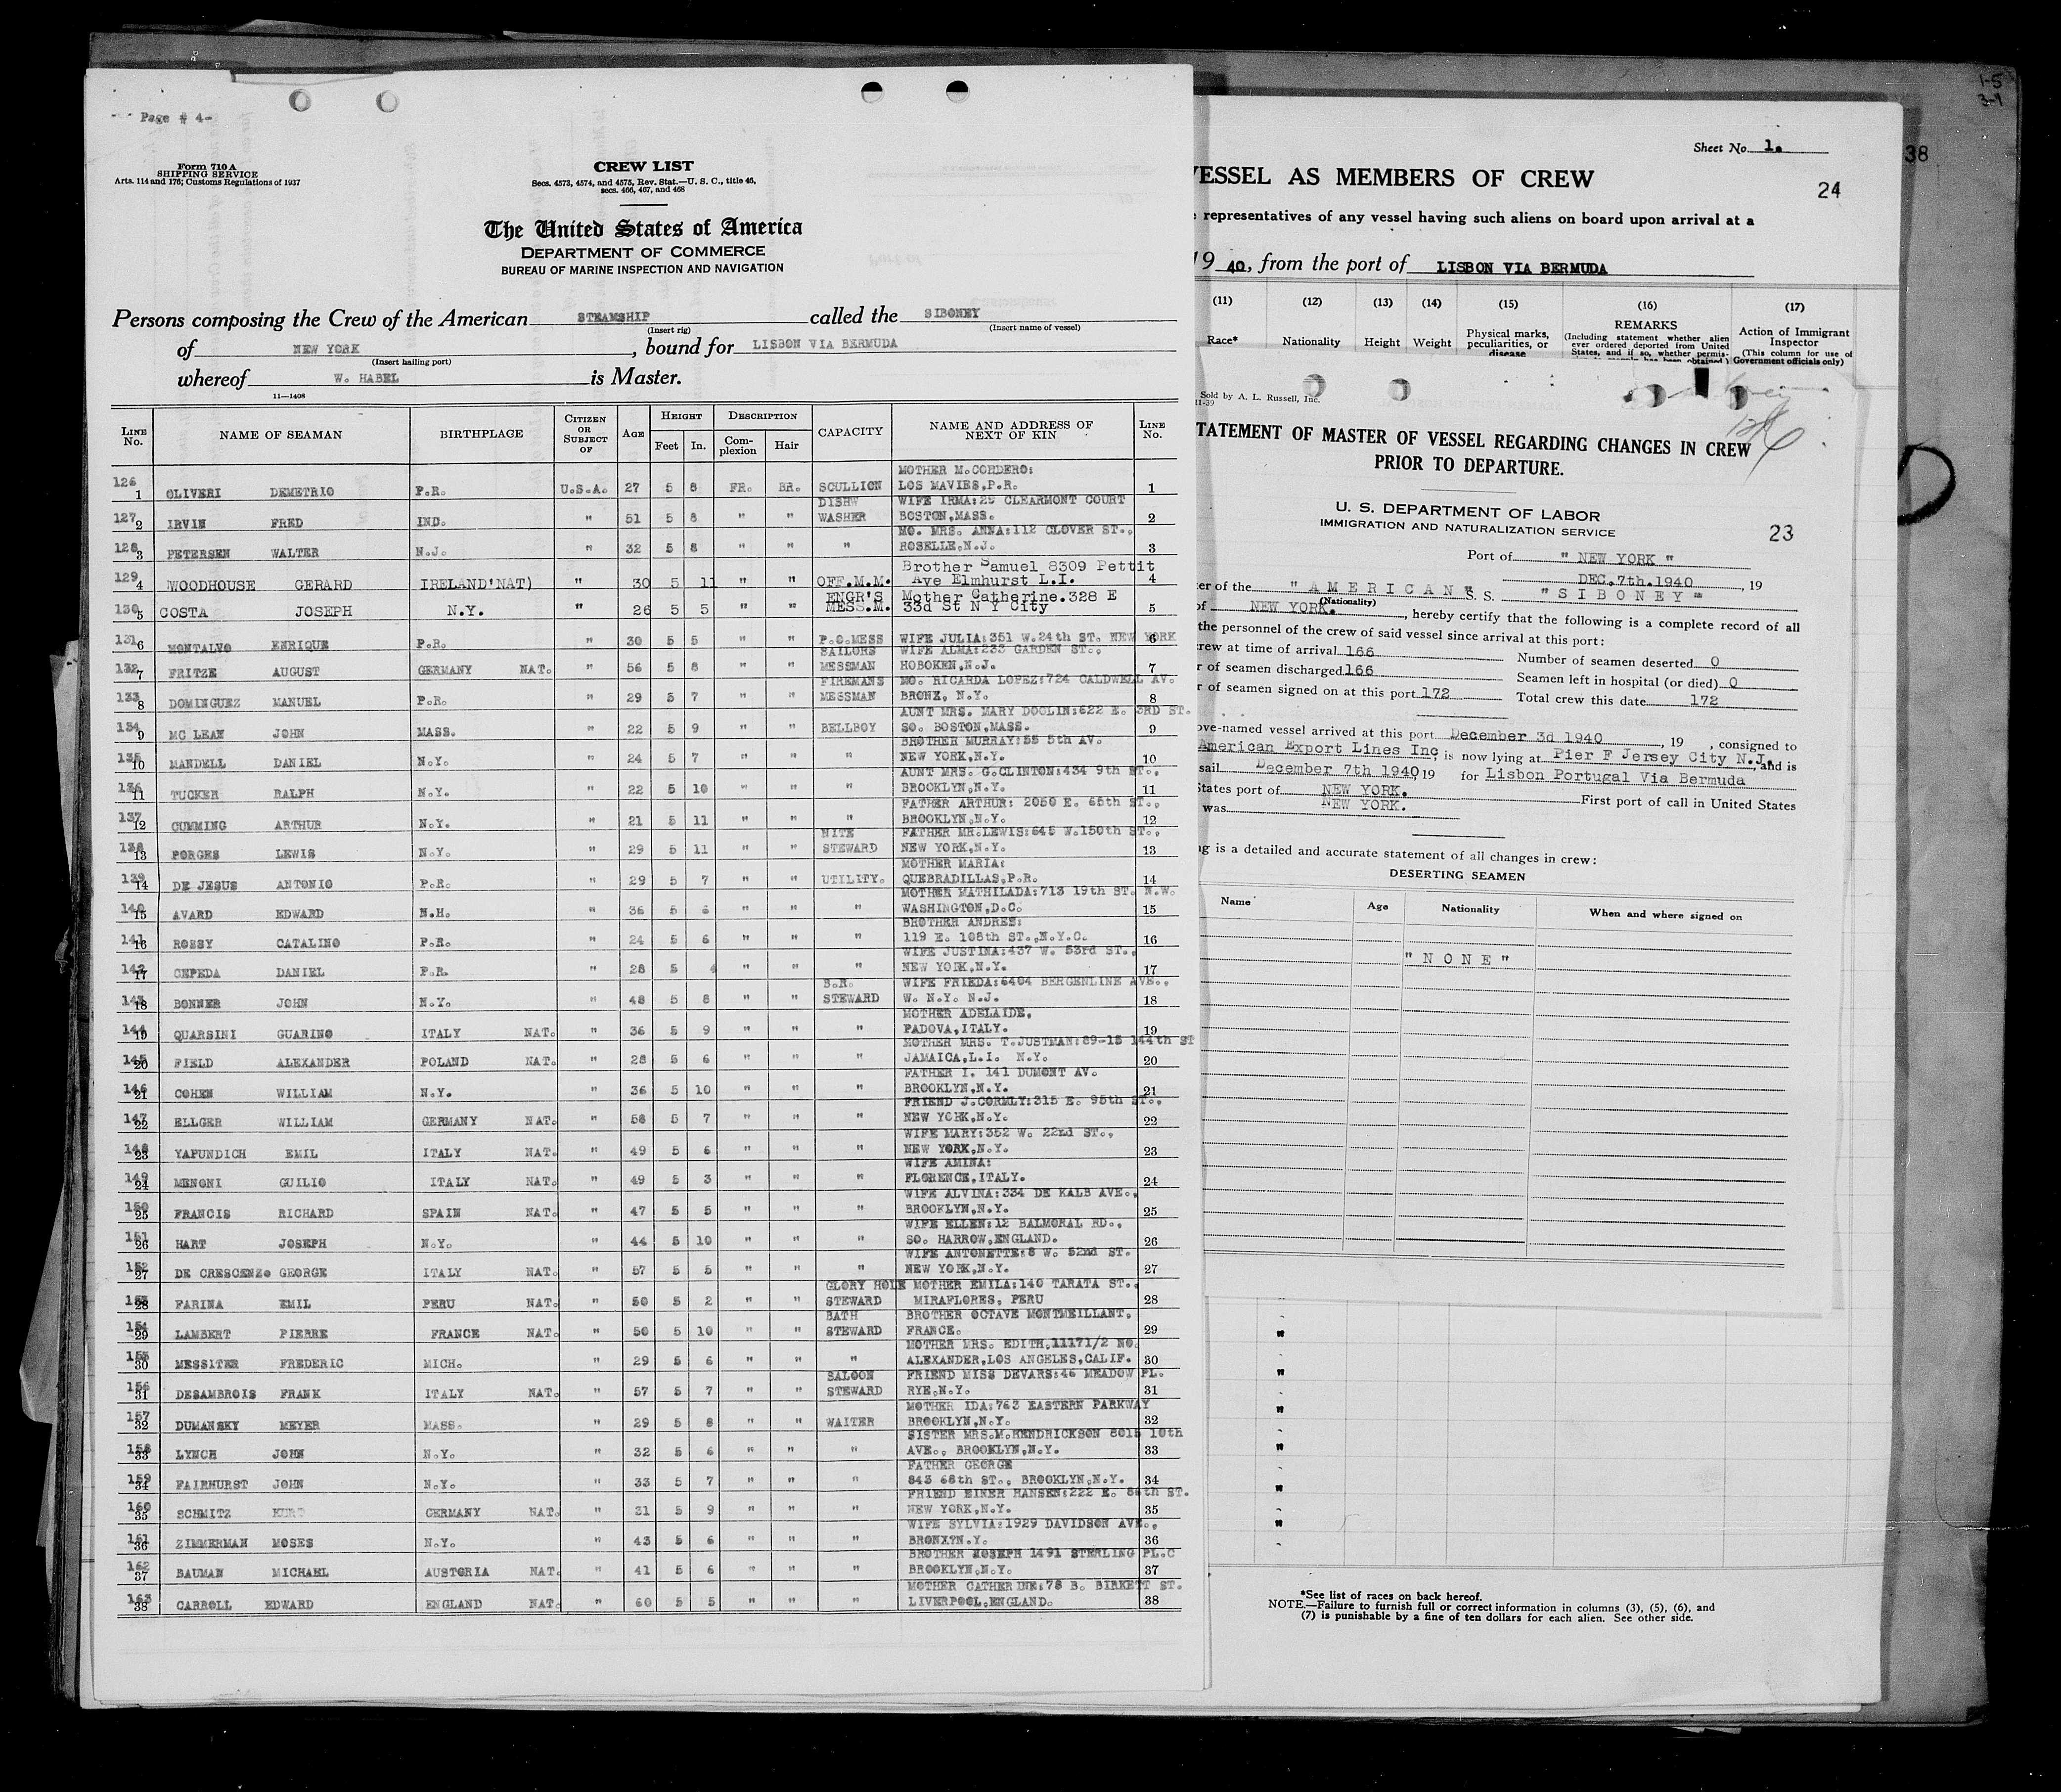 Page # 4-
Form 710 A
SHIPPING SERVICE
Arts. 114 and 176; Customs Regulations of 1937
CREW LIST
Secs. 4573, 4574, and 4575, Rev. Stat.—U. S. C., title 46,
secs. 466, 467, and 468
The United States of America
DEPARTMENT OF COMMERCE
BUREAU OF MARINE INSPECTION AND NAVIGATION
Persons composing the Crew of the American STEAMSHIP called the SIBONEY
(Insert rig) (Insert name of vessel)
of NEW YORK, bound for LISBON VIA BERMUDA
(Insert hailing port)
whereof W. HABEL is Master.
11—1408
LINE No. NAME OF SEAMAN BIRTHPLACE CITIZEN OR SUBJECT OF AGE HEIGHT Feet In. DESCRIPTION Complexion Hair CAPACITY NAME AND ADDRESS OF NEXT OF KIN LINE No.
MOTHER M.CORDERO:
126 1 OLIVERI DEMETRIO P.R. U.S.A. 27 5 8 FR. BR. SCULLION LOS MAVIES,P.R. 1
DISHW WIFE IRMA:29 CLEARMONT COURT
127 2 IRVIN FRED IND. " 51 5 8 " " WASHER BOSTON,MASS. 2
MO. MRS. ANNA:112 CLOVER ST.,
128 3 PETERSEN WALTER N.J. " 32 5 8 " " " ROSELLE,N.J. 3
Brother Samuel 8309 Pettit
129 4 WOODHOUSE GERARD IRELAND'NAT) " 30 5 11 " " OFF.M.M. Ave Elmhurst L.I. 4
ENGR'S Mother Catherine.328 E
130 5 COSTA JOSEPH N.Y. " 26 5 5 " " MESS.M. 33d St N Y City 5
131 6 MONTALVO ENRIQUE P.R. " 30 5 5 " " P.O.MESS WIFE JULIA:351 W.24th ST. NEW YORK 6
SAILORS WIFE ALMA:233 GARDEN ST.,
132 7 FRITZE AUGUST GERMANY NAT. " 56 5 8 " " MESSMAN HOBOKEN,N.J. 7
FIREMANS MO. RICARDA LOPEZ:724 CALDWELL AV.
133 8 DOMINGUEZ MANUEL P.R. " 29 5 7 " " MESSMAN BRONX, N.Y. 8
AUNT MRS. MARY DOOLIN:622 E. 3RD ST.
134 9 MC LEAN JOHN MASS. " 22 5 9 " " BELLBOY SO. BOSTON,MASS. 9
BROTHER MURRAY:55 5th AV.
135 10 MANDELL DANIEL N.Y. " 24 5 7 " " " NEW YORK,N.Y. 10
AUNT MRS. G.CLINTON:434 9th ST.,
136 11 TUCKER RALPH N.Y. " 22 5 10 " " " BROOKLYN,N.Y. 11
FATHER ARTHUR: 2050 E. 65th ST.,
137 12 CUMMING ARTHUR N.Y. " 21 5 11 " " " BROOKLYN,N.Y. 12
NITE FATHER MR.LEWIS:645 W.150th ST.,
138 13 PORGES LEWIS N.Y. " 29 5 11 " " STEWARD NEW YORK,N.Y. 13
MOTHER MARIA:
139 14 DE JESUS ANTONIO P.R. " 29 5 7 " " UTILITY. QUEBRADILLAS,P.R. 14
MOTHER MATHILADA:713 19th ST. N.W.
140 15 AVARD EDWARD N.H. " 36 5 " " " WASHINGTON,D.C. 15
BROTHER ANDRES:
141 16 ROSSY CATALINO P.R. " 24 5 6 " " " 119 E. 108th ST.,N.Y.C. 16
WIFE JUSTINA:437 W. 53rd ST.,
142 17 CEPEDA DANIEL P.R. " 28 5 4 " " " NEW YORK,N.Y. 17
B.R. WIFE FRIEDA:6404 BERGENLINE AVE.,
143 18 BONNER JOHN N.Y. " 48 5 8 " " STEWARD W. N.Y. N.J. 18
MOTHER ADELAIDE,
144 19 QUARSINI GUARINO ITALY NAT. " 36 5 9 " " " PADOVA,ITALY. 19
MOTHER MRS. T.JUSTMAN:89-15 144th ST
145 20 FIELD ALEXANDER POLAND NAT. " 28 5 6 " " " JAMAICA,L.I. N.Y. 20
FATHER I. 141 DUMONT AV.
146 21 COHEN WILLIAM N.Y. " 36 5 10 " " " BROOKLYN,N.Y. 21
FRIEND J.CORMLY:315 E. 95th ST.,
147 22 ELLGER WILLIAM GERMANY NAT. " 58 5 7 " " " NEW YORK,N.Y. 22
WIFE MARY:352 W. 22nd ST.,
148 23 YAFUNDICH EMIL ITALY NAT. " 49 5 6 " " " NEW YORK,N.Y. 23
WIFE AMINA:
149 24 MENONI GUILIO ITALY NAT. " 49 5 3 " " " FLORENCE,ITALY. 24
WIFE ALVINA:334 DE KALB AVE.,
150 25 FRANCIS RICHARD SPAIN NAT. " 47 5 5 " " " BROOKLYN,N.Y. 25
WIFE ELLEN:12 BALMORAL RD.,
151 26 HART JOSEPH N.Y. " 44 5 10 " " " SO. HARROW,ENGLAND. 26
WIFE ANTONETTE:8 W. 52nd ST.
152 27 DE CRESCENZO GEORGE ITALY NAT. " 57 5 5 " " " NEW YORK,N.Y. 27
GLORY HOLE MOTHER EMILA:140 TARATA ST.,
153 28 FARINA EMIL PERU NAT. " 50 5 2 " " STEWARD MIRAFLORES, PERU 28
BATH BROTHER OCTAVE MONTMEILLANT,
154 29 LAMBERT PIERRE FRANCE NAT. " 50 5 10 " " STEWARD FRANCE. 29
MOTHER MRS. EDITH,11171/2 NO.
155 30 MESSITER FREDERIC MICH. " 29 5 6 " " " ALEXANDER,LOS ANGELES,CALIF. 30
SALOON FRIEND MISS DEVARS:46 MEADOW PL.
156 31 DESAMBROIS FRANK ITALY NAT. " 57 5 7 " " STEWARD RYE,N.Y. 31
MOTHER IDA:763 EASTERN PARKWAY
157 32 DUMANSKY MEYER MASS. " 29 5 8 " " WAITER BROOKLYN,N.Y. 32
SISTER MRS.M.HENDRICKSON 8015 10th
158 33 LYNCH JOHN N.Y. " 32 5 6 " " " AVE., BROOKLYN,N.Y. 33
FATHER GEORGE
159 34 FAIRHURST JOHN N.Y. " 33 5 7 " " " 843 68th ST., BROOKLYN,N.Y. 34
FRIEND EINER HANSEN:222 E. 86th ST.
160 35 SCHMITZ KURT GERMANY NAT. " 31 5 9 " " " NEW YORK,N.Y. 35
WIFE SYLVIA:1929 DAVIDSON AVE.,
161 36 ZIMMERMAN MOSES N.Y. " 43 5 6 " " " BRONX?N.Y. 36
BROTHER JOSEPH 1491 STERLING PL.C
162 37 BAUMAN MICHAEL AUSTORIA NAT. " 41 5 6 " " " BROOKLYN,N.Y. 37
MOTHER CATHERINE:78 B. BIRKETT ST.
163 38 CARROLL EDWARD ENGLAND NAT. " 60 5 5 " " " LIVERPOOL,ENGLAND. 38
1-5
3-1
38
Sheet No. 1.
24
VESSEL AS MEMBERS OF CREW
representatives of any vessel having such aliens on board upon arrival at a
19 40, from the port of LISBON VIA BERMUDA
(11) (12) (13) (14) (15) (16) (17)
Race* Nationality Height Weight Physical marks, peculiarities, or disease REMARKS (Including statement whether alien ever ordered deported from United States, and if so, whether permis- Action of Immigrant Inspector (This column for use of Government officials only)
Sold by A. L. Russell, Inc.
11-39
STATEMENT OF MASTER OF VESSEL REGARDING CHANGES IN CREW
PRIOR TO DEPARTURE.
U. S. DEPARTMENT OF LABOR
IMMIGRATION AND NATURALIZATION SERVICE
23
Port of " NEW YORK "
DEC.7th.1940, 19
er of the " AMERICAN" S. S. " SIBONEY "
(Nationality)
of NEW YORK., hereby certify that the following is a complete record of all
the personnel of the crew of said vessel since arrival at this port:
rew at time of arrival 166 Number of seamen deserted 0
r of seamen discharged 166 Seamen left in hospital (or died) 0
r of seamen signed on at this port 172 Total crew this date 172
ove-named vessel arrived at this port December 3d 1940, 19 , consigned to
American Export Lines Inc, is now lying at Pier F Jersey City N.J., and is
sail December 7th 1940 19 for Lisbon Portugal Via Bermuda
States port of NEW YORK. First port of call in United States
was NEW YORK.
ng is a detailed and accurate statement of all changes in crew:
DESERTING SEAMEN
Name Age Nationality When and where signed on
"NONE"
*See list of races on back hereof.
NOTE.—Failure to furnish full or correct information in columns (3), (5), (6), and
(7) is punishable by a fine of ten dollars for each alien. See other side.